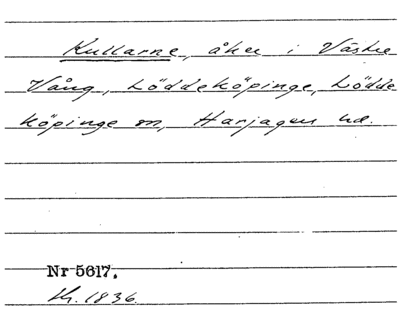 Kullarne, åker i Västre
Vång, Löddeköpinge, Lödde
köpinge sn, Harjagers hd.
Nr 5617.
th. 1836.